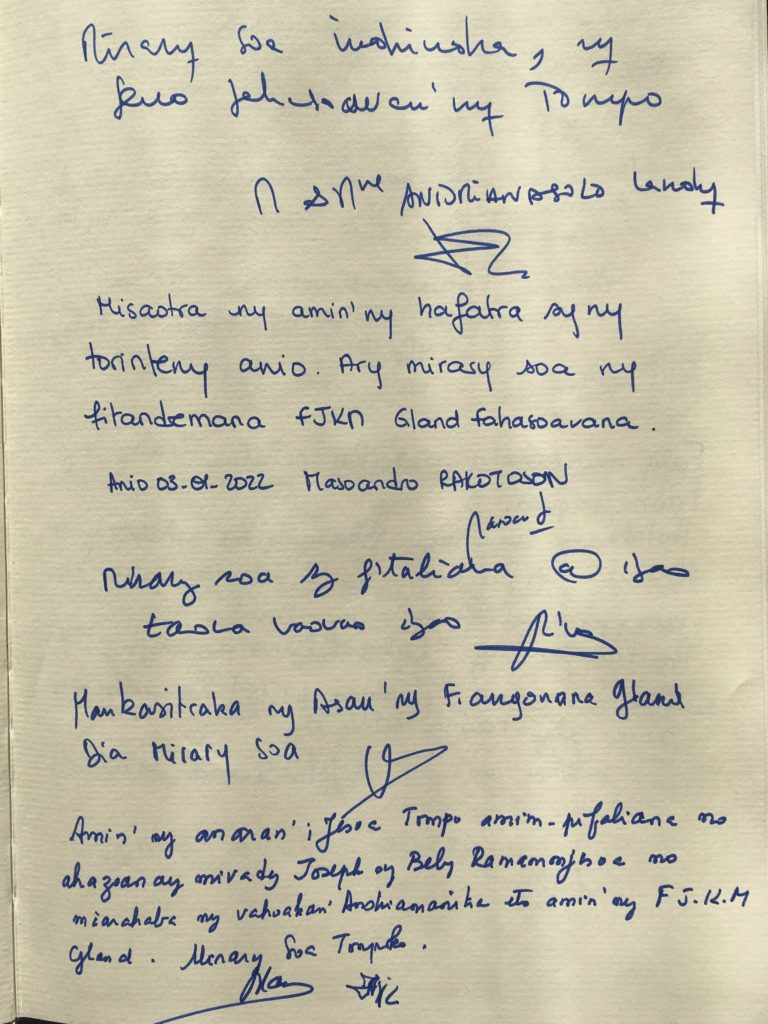 Mirary soa indrindra, ny
feno fahasoavan'ny Tompo
M & Mme ANDRIANASOLO Landy
Misaotra ny amin'ny hafatra sy ny
toriteny anio. Ary mirary soa ny
fitandremana FJKM Gland fahasoavana.
Anio 03-01-2022 Masoandro RAKOTOSON
Mirary soa sy fitahiana @ izao
taona vaovao izao
Mankasitraka ny Asan'ny Fiangonana Gland
Dia Mirary Soa
Amin'ny anaran'i Jesoa Tompo amim-pifaliana no
ahazoanay mivady Joseph sy Beby Ramamonjisoa no
miarahaba ny vahoakan'Andriamanitra eto amin'ny F.J.K.M
Gland. Mirary Soa Tompoko.